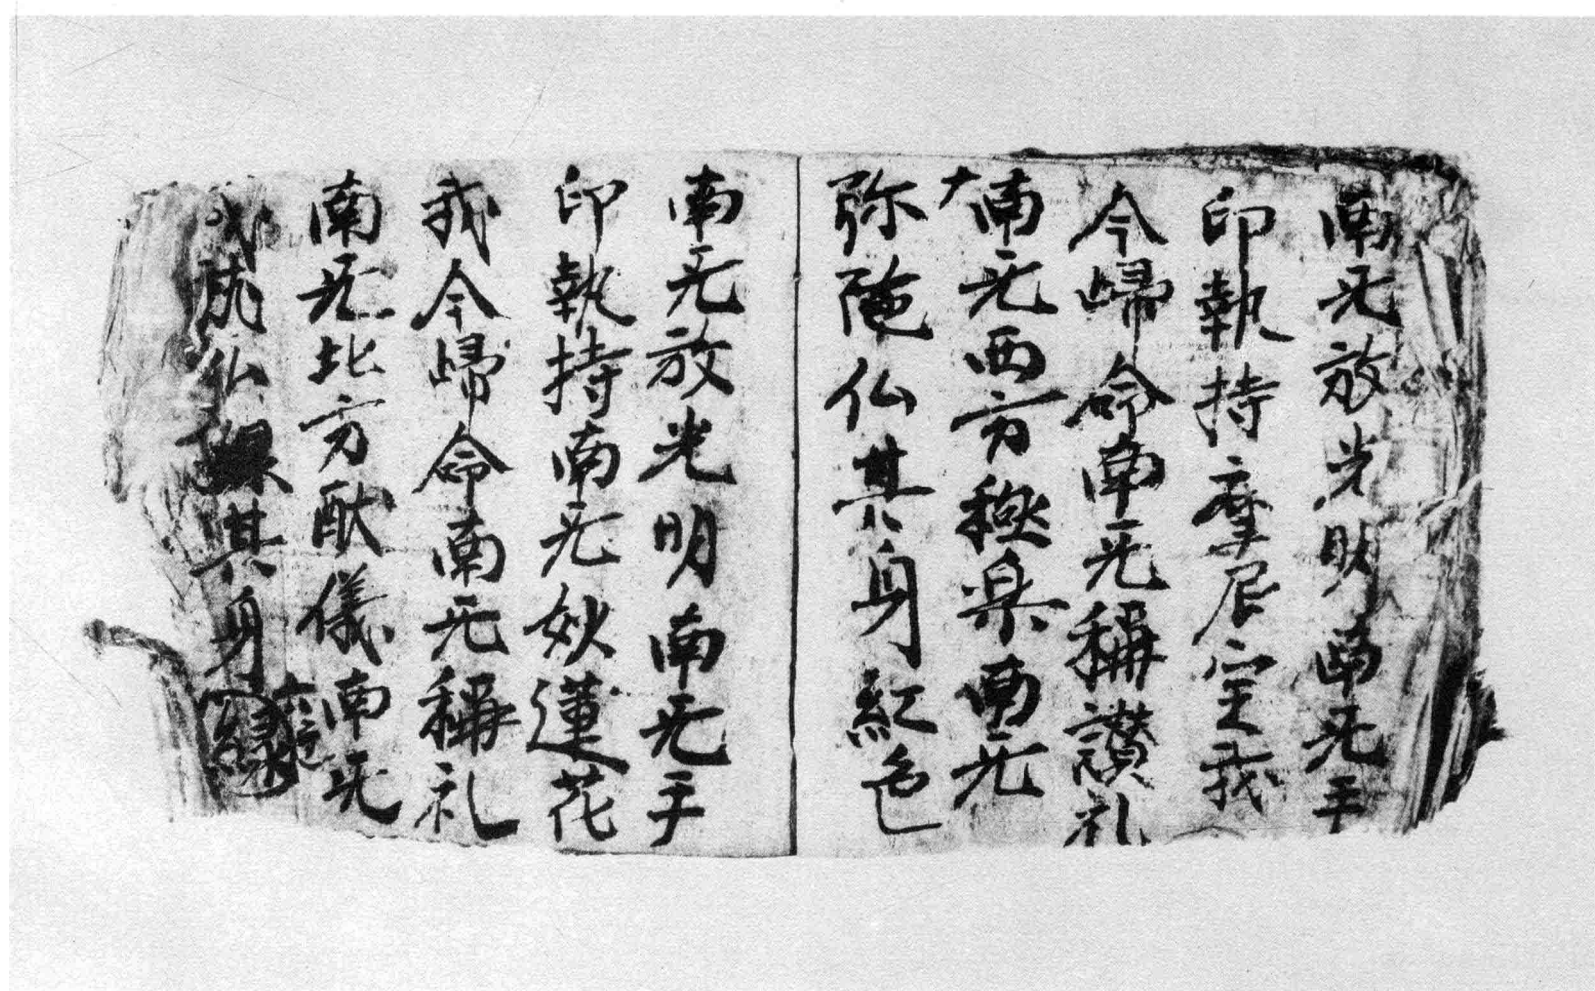 南无放光明南无手
印執持摩尼宝我
今歸命南无稱讃礼
南无西方極楽南无
弥陁仏其身紅色
南无放光明南无手
印執持南无妙蓮花
我今歸命南无稱礼
南无北方献儀南无
成就仏其身緑